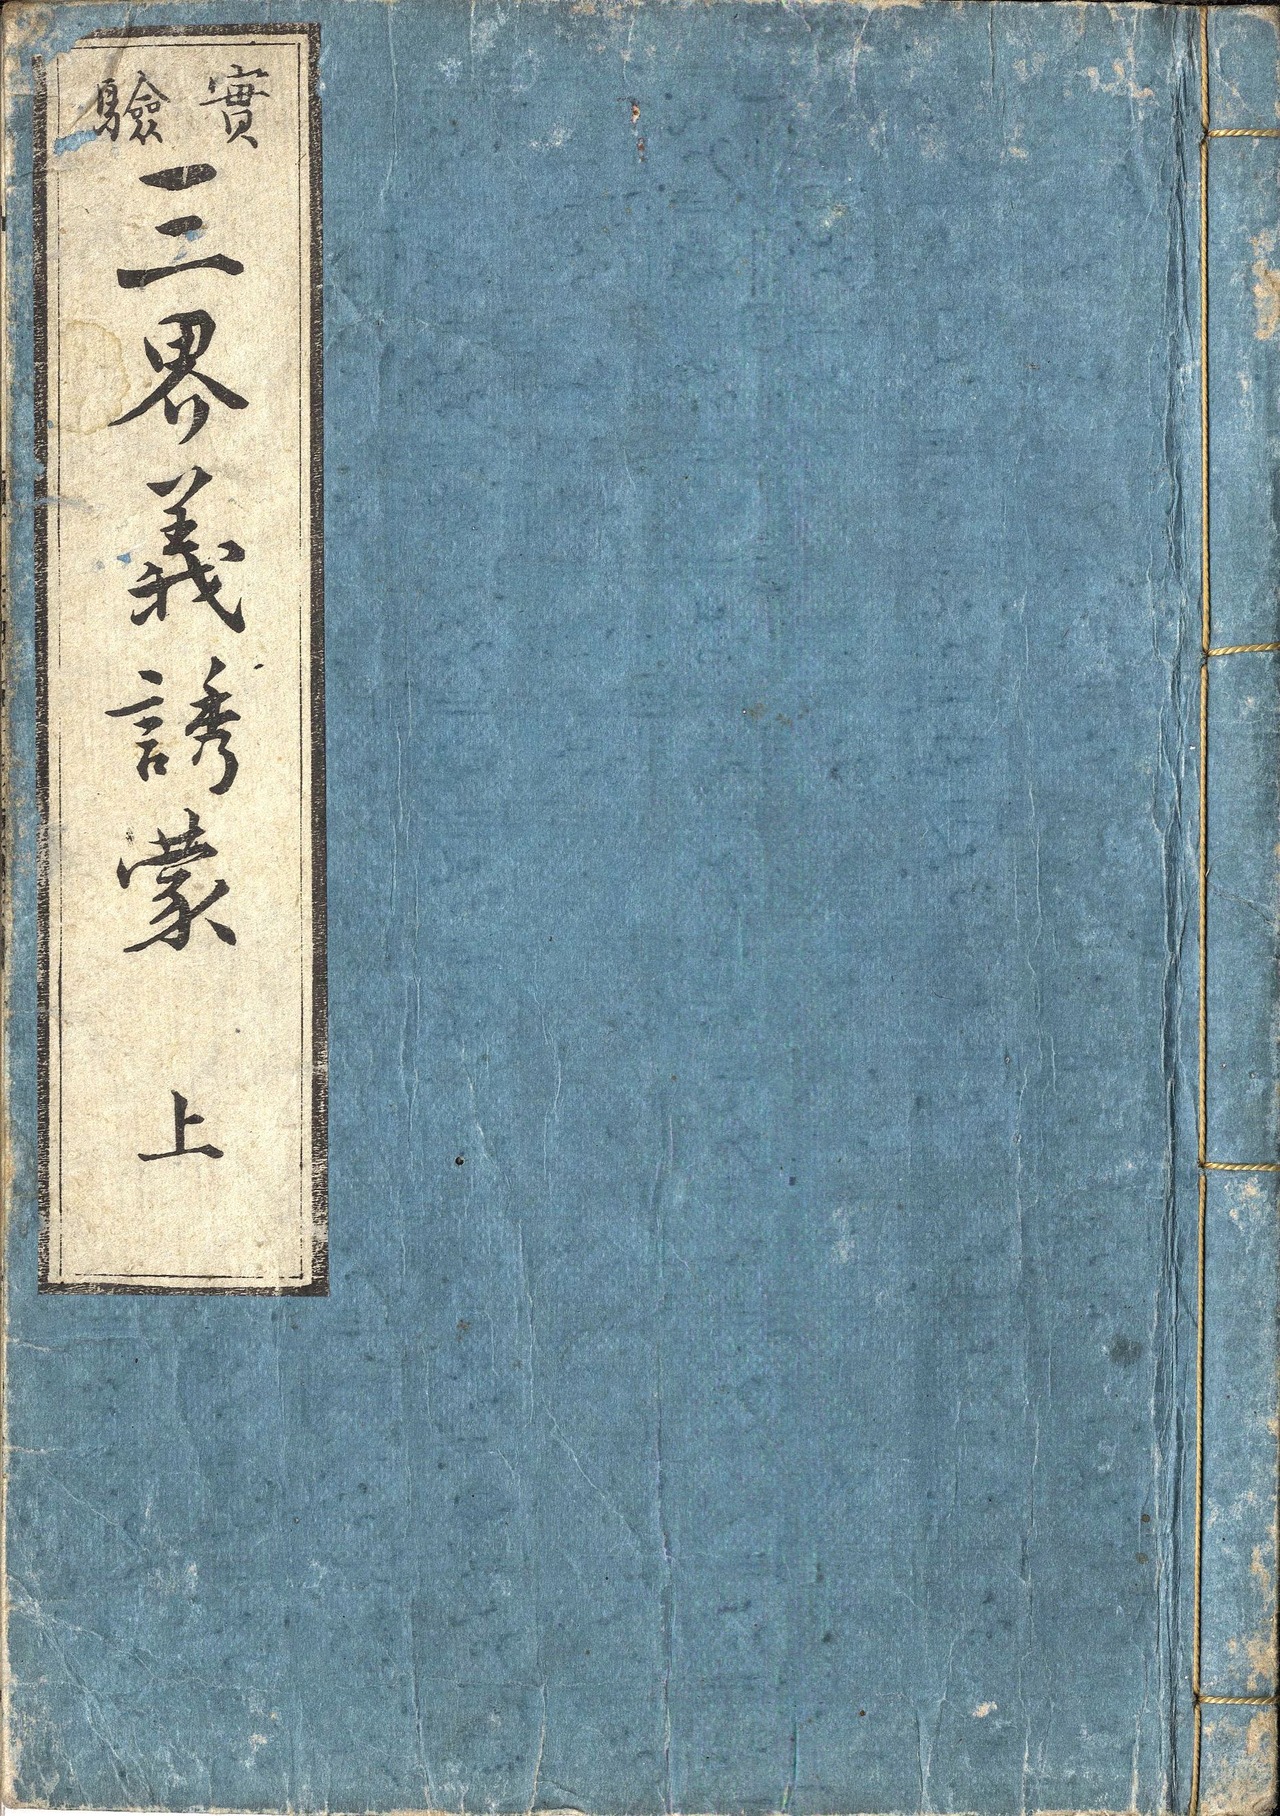 實驗
三界義誘蒙 上